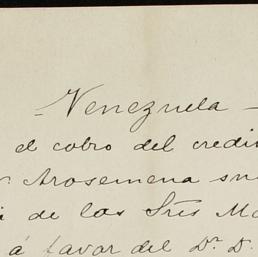 - Venezuela -
el cobro del credi
Arosemena su
de las Srēs Mo
á favor del Dr. D.